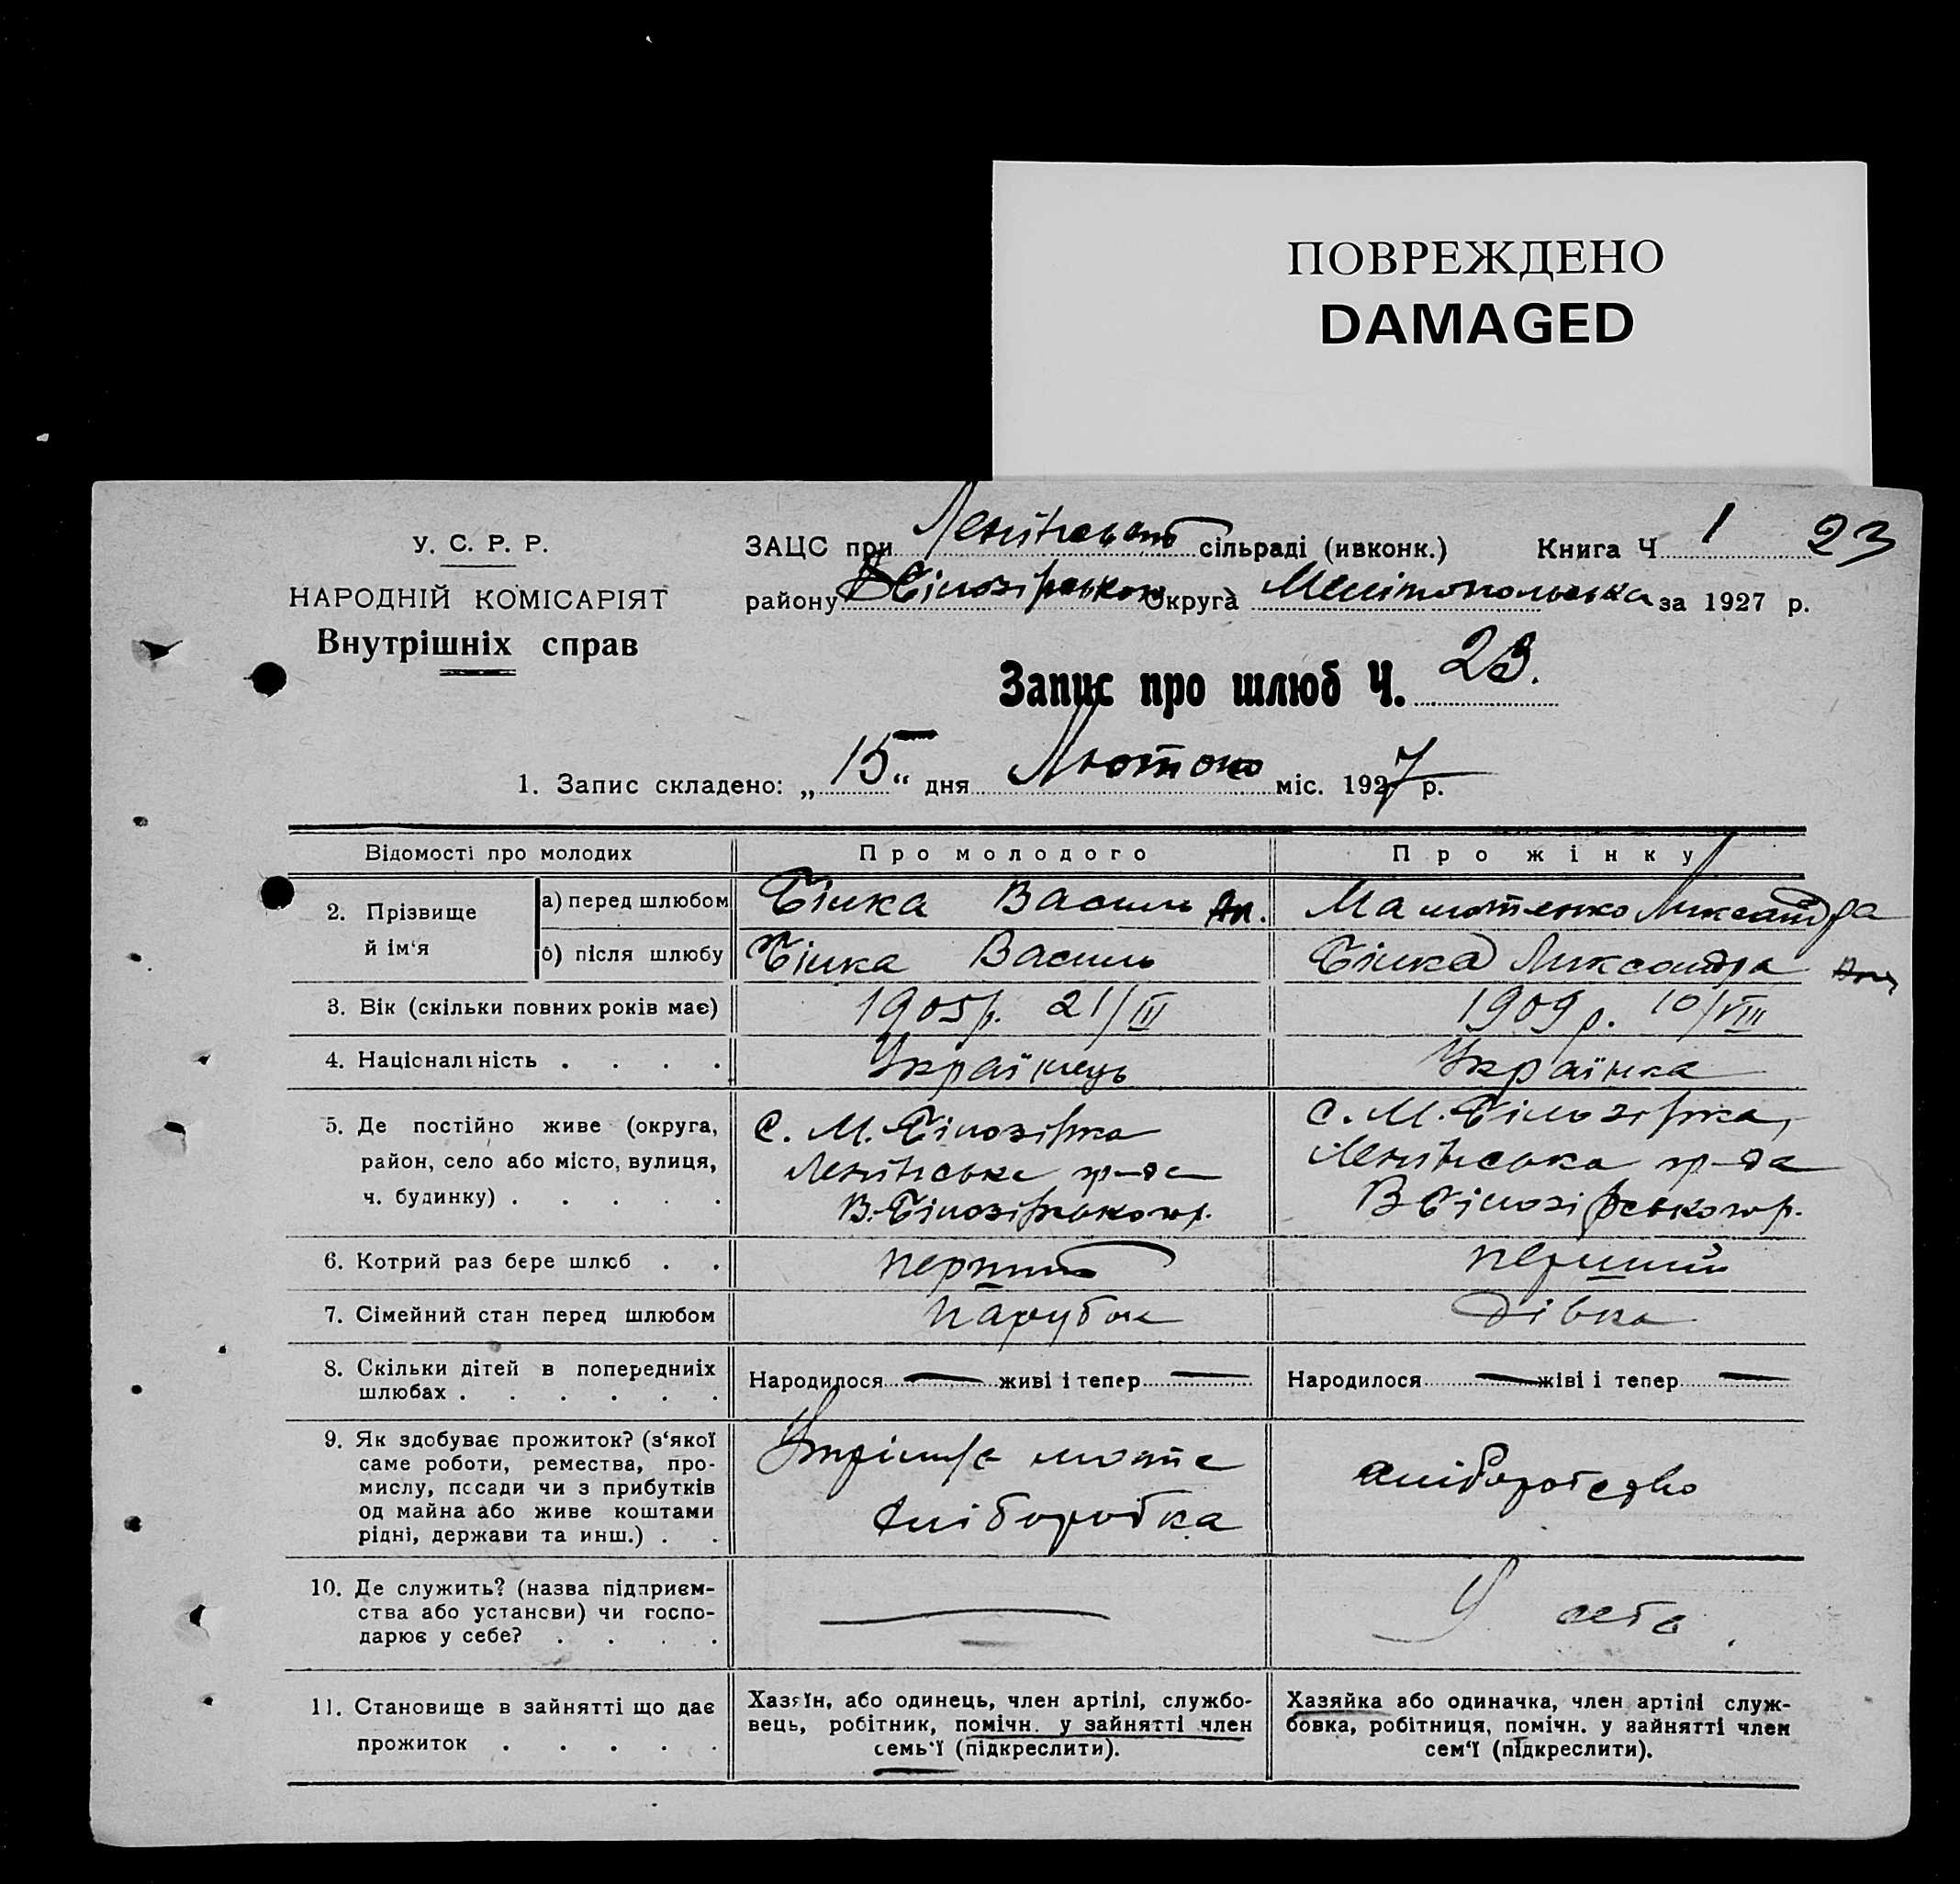 ПОВРЕЖДЕНО
DAMAGED
У. С. Р. Р.
НАРОДНІЙ КОМІСАРІЯТ
Внутрішніх справ
ЗАЦС при сільраді (ивконк.) Книга Ч 1 23
району Округа Мелітопольська за 1927 р.
Запис про шлюб Ч. 23.
1. Запис складено: „15“ дня Лютого міс. 1927 р.
Відомості про молодих Про молодого Про жінку
2. Прізвище й ім‘я
а) перед шлюбом Білка Василь Олександра
б) після шлюбу Білка Василь Білка Олександра
3. Вік (скільки повних років має) 1905 р. 21/II 1909 р. 10/VIII
4. Національність . . . . Українець Українка
5. Де постійно живе (округа,
район, село або місто, вулиця,
ч. будинку) . . . . .
С. М. Білозірка
Ленінська
В. Білозірського р.
С. М. Білозірка,
Ленінська
В Білозірського р.
6. Котрий раз бере шлюб . . перший перший
7. Сімейний стан перед шлюбом парубок дівка
8. Скільки дітей в попередниіх
шлюбах . . . . . .
Народилося — живі і тепер — Народилося — жіві і тепер —
9. Як здобуває прожиток? (з‘якої
саме роботи, ремества, про-
мислу, посади чи з прибутків
од майна або живе коштами
рідні, держави та инш.) . .
хліборобка
хліборобство
10. Де служить? (назва підприєм-
ства або установи) чи госпо-
дарює у себе? . . . .
— У себе
11. Становище в зайнятті що дає
прожиток . . . . .
Хазяїн, або одинець, член артілі, службо-
вець, робітник, помічн. у зайнятті член
семь‘ї (підкреслити).
Хазяйка або одиначка, член артілі служ-
бовка, робітниця, помічн. у зайнятті член
сем‘ї (підкреслити).